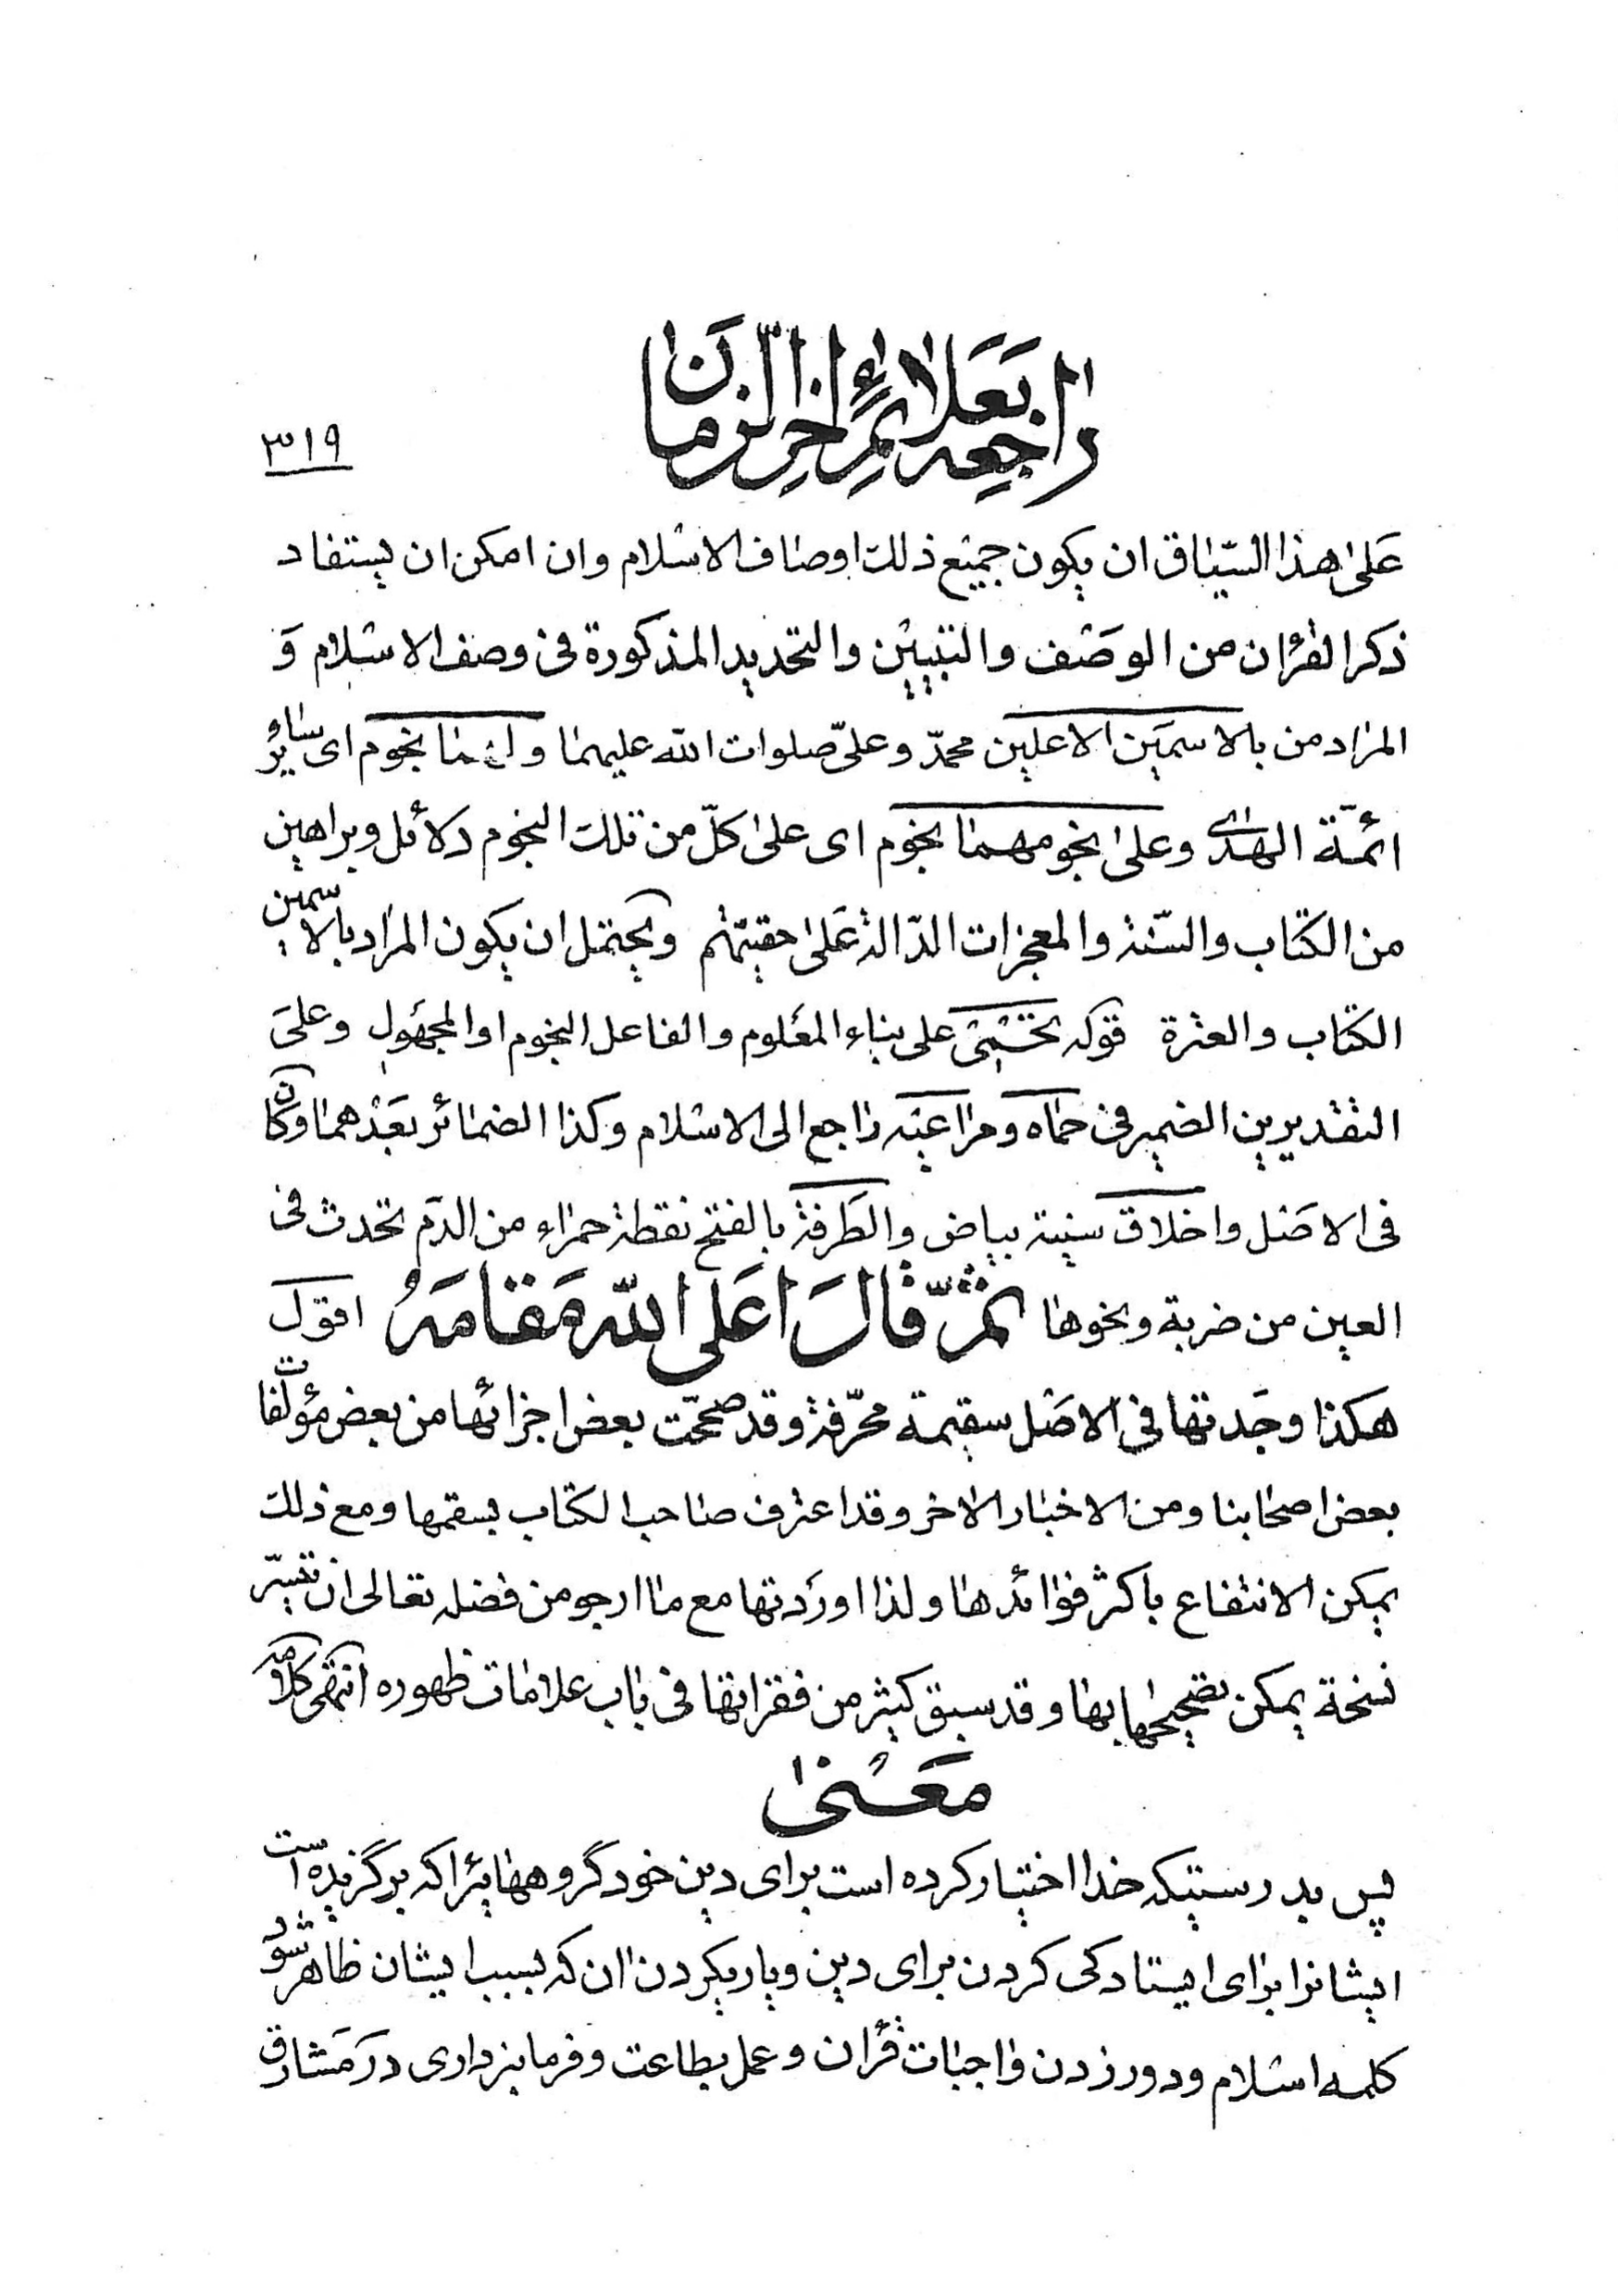 راجعه بعلائم آخر الزمان
٣١٩
عَلىٰ هذا السّياق ان يكون جميع ذلك اوصاف الاسلام وان امكن ان يستفاد
ذكر القرٰان من الوصف والتبيين والتحديد المذكورة فى وصف الاسلام وَ
المراد من بالاسمَين الاعلين محمّد وعلىّ صلوات الله عليهما ولهما نجوم اى سائر
ائمّة الهدٰى وعلى نجومهما نجوم اى علىٰ كلّ من تلك النجوم دلائل وبراهين
من الكتاب والسّنة والمعجزات الدّالة عَلىٰ حقيّتهم ويحتمل ان يكون المراد بالاسمين
الكتاب والعترة قوله تحمى على بناء المعلوم والفاعل النجوم او المجهول وعلىَ
التقديرين الضمير فى حماه ومراعيه راجع الى الاسلام وكذا الضمائر بعَدْهما وكان
فى الاصل واخلاق سنية بياض والطَرفة بالفتح نقطة حمراء من الدّم تحدث فى
العين من ضربة ونحوها ثمّ قالَ اعَلى اللّه مَقامَهُ اقول
هكذا وجَدتها فى الاصل سقيمة محرّفة وقد صحّحت بعض اجزائها من بعض مؤلّفات
بعض اصحابنا ومن الاخبار الاخر وقد اعترف صاحب الكتاب بسقمها ومع ذلك
يمكن الانتفاع باكثر فوائدها ولذا اورَدتها مع ما ارجو من فضله تعالى ان تتيسّر
نسخة يمكن تصحيحها بها وقد سبق كثير من فقراتها فى باب علامات ظهوره انتهى كلامه
مَعْنىٰ
پس بدرستيكه خدا اختيار كرده است براى دين خود گروههائيرا كه برگزيده است
ايشانرا براى ايستادكى كردن براى دين و ياريكردن آن كه بسبب ايشان ظاهر شود
كلمه اسلام و دور زدن واجبات قرآن و عمل بطاعت و فرمانبردارى درَ مَشارق